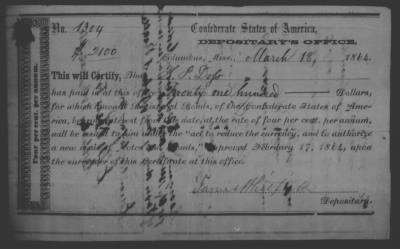 No. 1304
Confederate States of America,
DEPOSITARY'S OFFICE,
$ 2100
Columbus, March 18, 1864.
This will Certify, That
has paid in at this office Twenty one hundred Dollars,
for which amount Bonds, of the Confederate States of Ame-
rica, bearing interest from this date, at the rate of four per cent. per annum,
will be issued to him under the "act to reduce the currency, and to authorize
a new issue of Notes and Bonds," approved February 17, 1864, upon
the surrender of this Certificate at this office.
Depositary.
Four per cent. per annum.